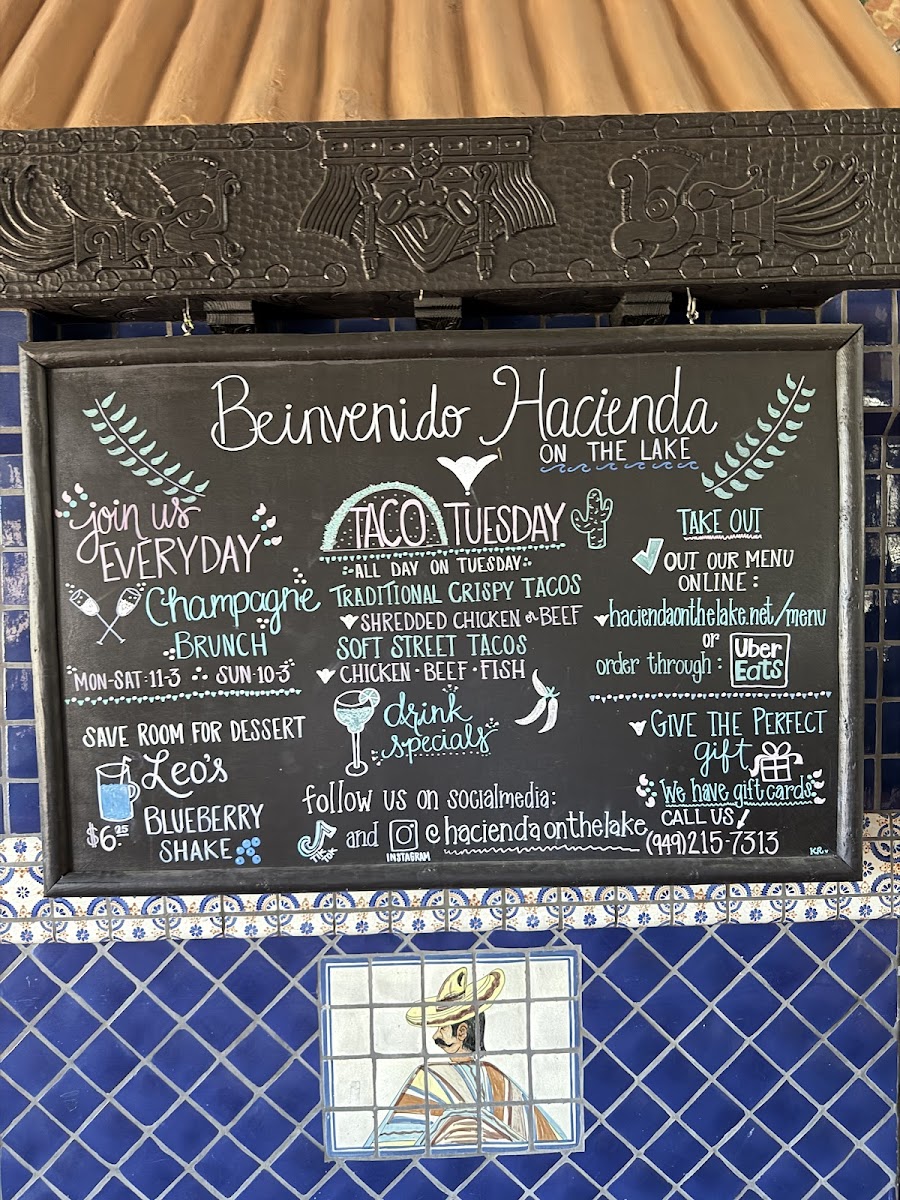 Beinvenido Hacienda
ON THE LAKE
join us
EVERYDAY
Champagne
BRUNCH
MON-SAT·11-3 SUN·10-3
SAVE ROOM FOR DESSERT
Leo's
BLUEBERRY
SHAKE
$6.25
TACO TUESDAY
ALL DAY ON TUESDAY
TRADITIONAL CRISPY TACOS
SHREDDED CHICKEN or BEEF
SOFT STREET TACOS
CHICKEN · BEEF · FISH
drink
specials
follow us on socialmedia:
TIKTOK and INSTAGRAM @haciendaonthelake
TAKE OUT
OUT OUR MENU
ONLINE:
haciendaonthelake.net/menu
or
order through: Uber
Eats
GIVE THE PERFECT
gift
We have gift cards
CALL US
(949)215-7313
KR